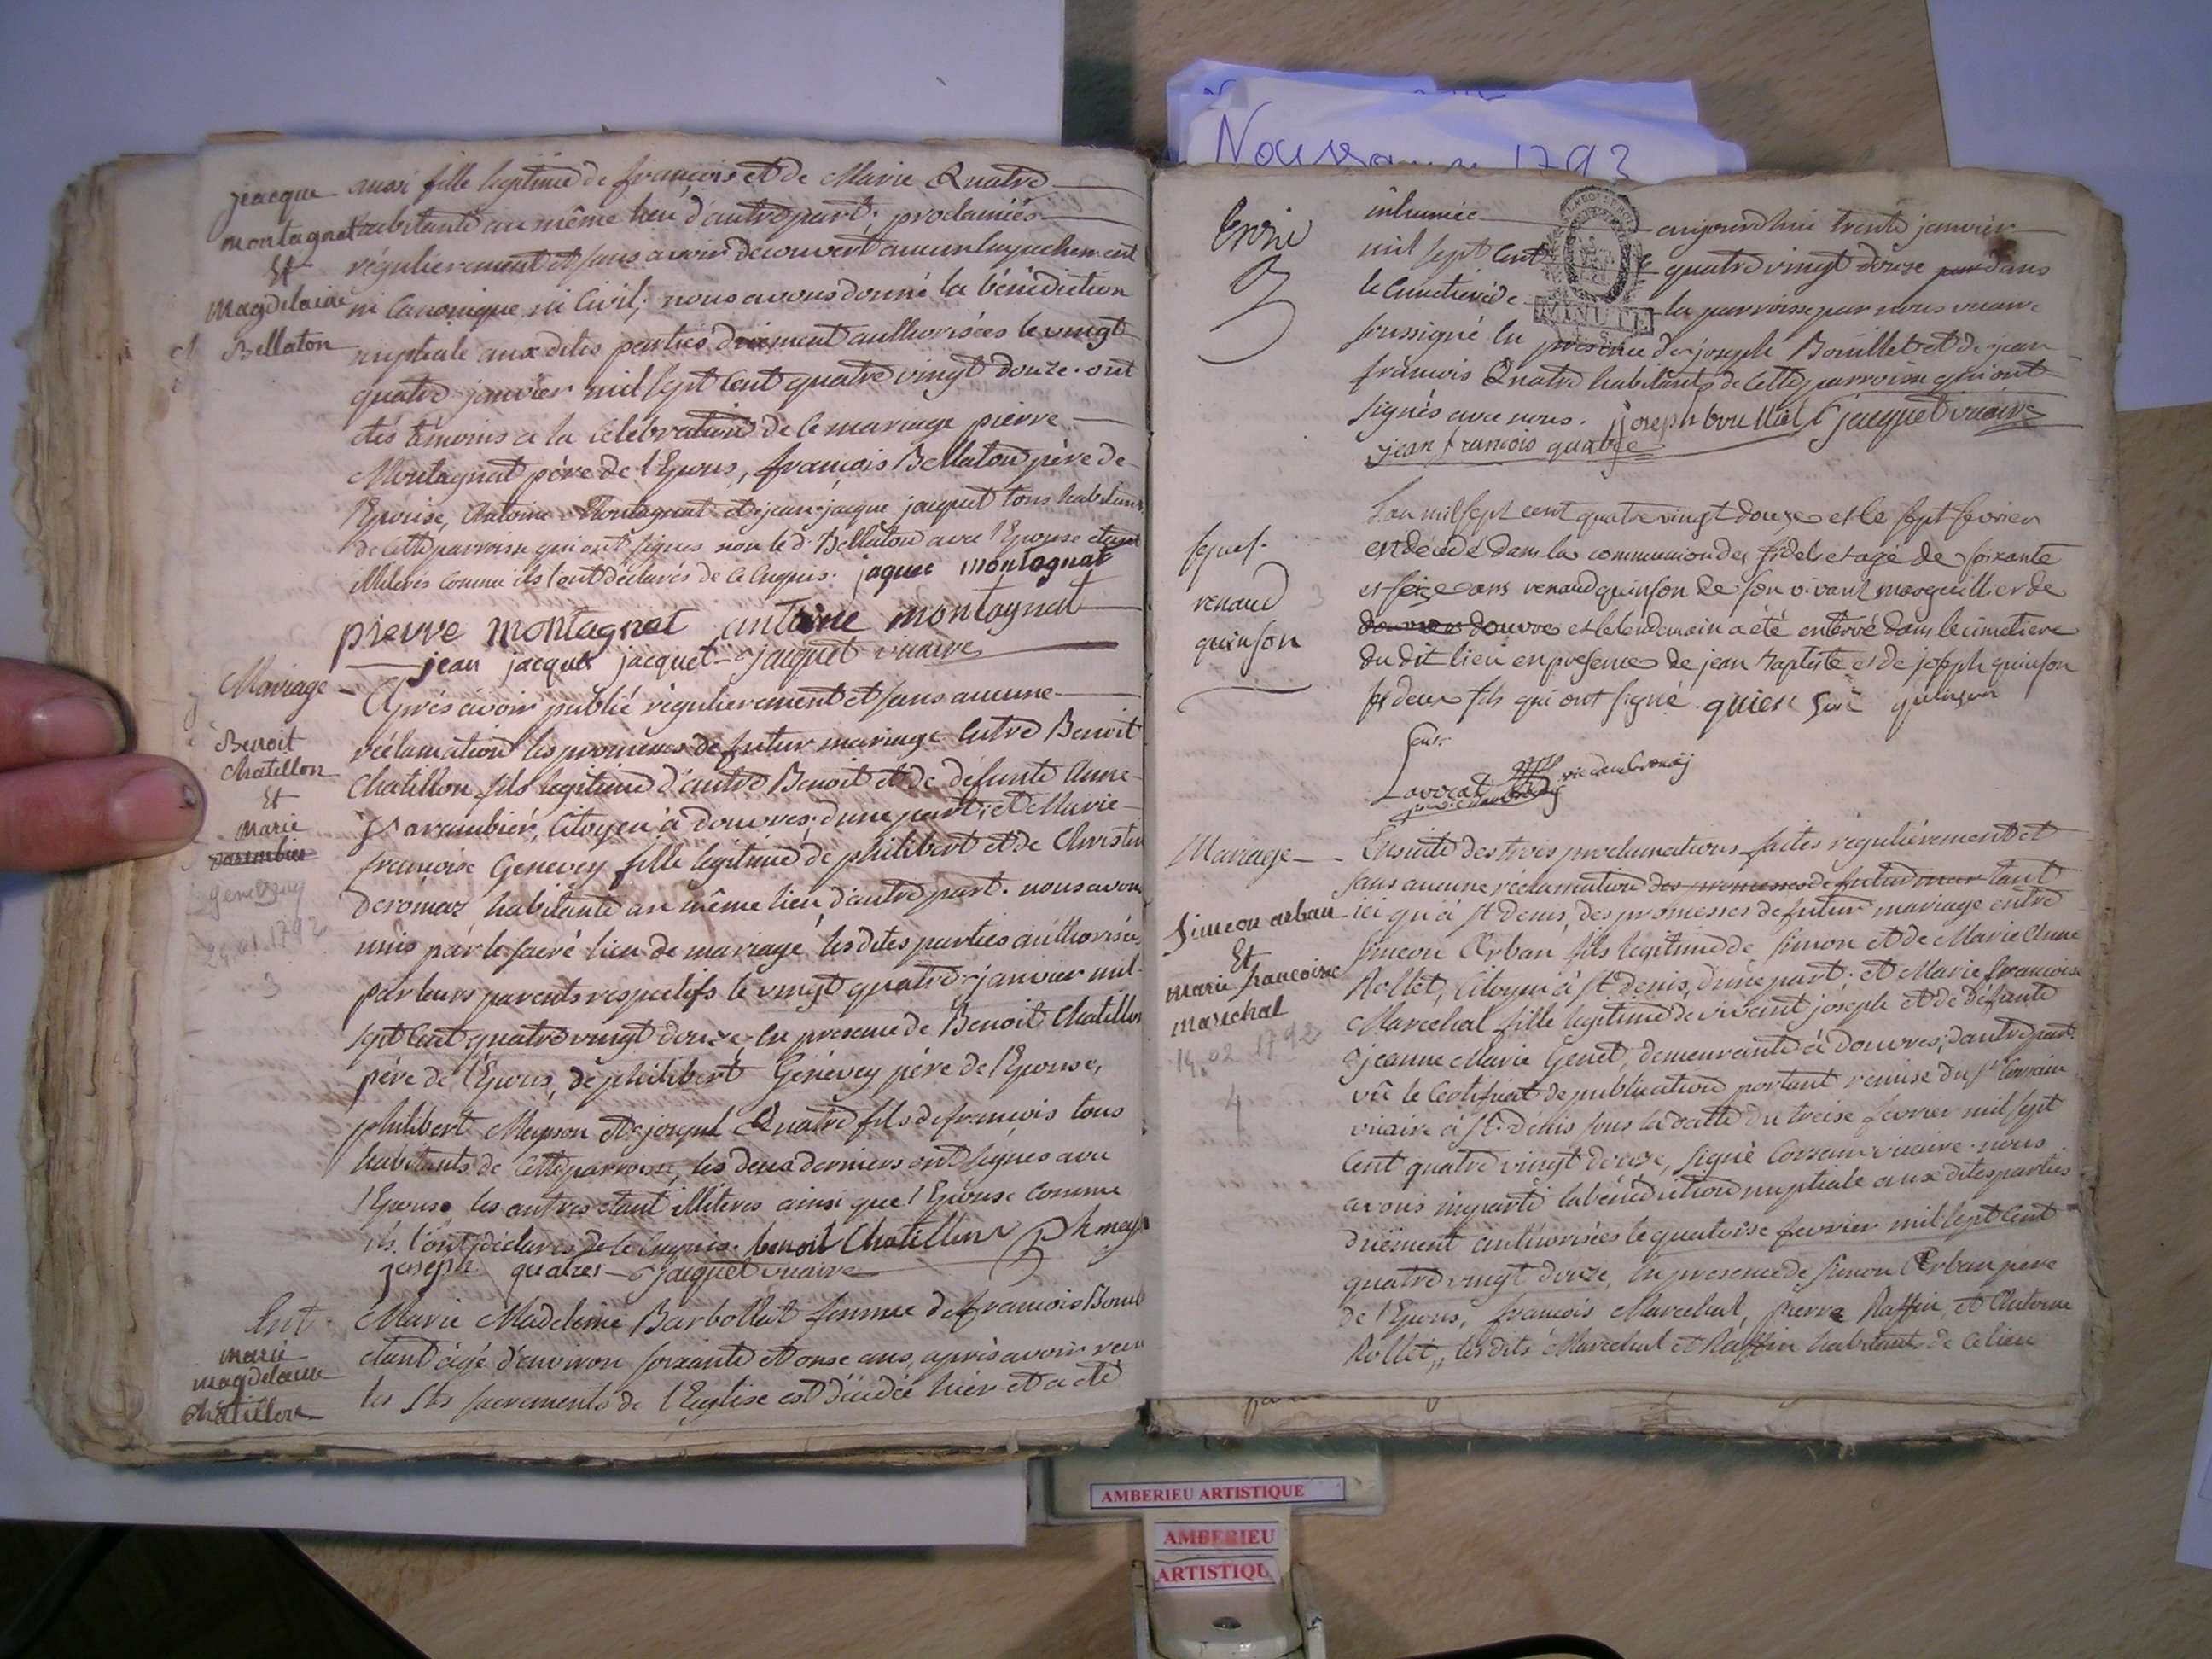 jacque
montagnat
Et
Magdelaine
Bellaton
aussi fille legitime de françois et de Marie Quatre
habitante au même lieu d'autre part. proclamés
régulierement et sans avoir découvert aucun Empechement
ni Canonique ni Civil; nous avons donné la bénédiction
nuptiale aux dites parties düement authorisées le vingt
quatre janvier mil sept Cent quatre vingt douze. ont
étés témoins a la Célébration de Ce mariage pierre
Montagnat père de l'Epoux, françois Bellaton père de
l'Epouse, Antoine Montagnat et jean jacque jacquet tous habitans
de Cette parroisse qui ont signés non led. Bellaton avec l'Epouse étant
illiterés Comme ils l'ont déclarés de Ce Enquis. jaque montagnat
pierre montagnat antoine montagnat
jean jacques jacquet jacquet vicaire
Mariage
Benoit
Chatillon
Et
Marie
parembier
genevay
24.01.1792
3
Après avoir publié régulierement et sans aucune
réclamation les promesses de futur mariage Entre Benoit
Chatillon fils legitime d'autre Benoit et de défunte Anne
parambier, Citoyen à douvres, d'une part; et Marie
françoise Genevey fille legitime de philibert et de Christine
deromas habitante au même lieu d'autre part. nous avons
unis par le sacré lien de mariage les dites parties authorisées
par leurs parents respectifs le vingt quatre janvier mil
sept Cent quatre vingt douze, En presence de Benoit Chatillon
père de l'Epoux, de philibert Génévey père de l'Epouse,
philibert Meyson et joseph Quatre fils de françois tous
habitants de Cette parroisse, les deux derniers ont signés avec
l'Epoux les autres étant illiteres ainsi que l'Epouse Comme
ils l'ont déclarés de Ce Enquis. benoit Chatillon Ph mey
joseph quatres jacquet vicaire
Ent.
marie
magdelaine
Chatillon
Marie Madeleine Barbollat femme de françois
étant agé d'environ soixante et onse ans, après avoir recu
les Sts sacrements de l'Eglise est décédée hier et a été
Nouss 1793
inhumée aujourd'hui trente janvier
mil sept Cent quatre vingt douze dans
le Cimetiere de la parroisse par nous vicaire
MINUTE
soussigné En presence de joseph Bouillet et de jean
francois Quatre habitants de Cette parroisse qui ont
signés avec nous. joseph bouillet jacquet vicaire
jean francois quatre
3
sepul.
renaud
quinson
3
L'an mil sept cent quatre vingt douze et le sept fevrier
est decedé dans la communion des fideles et agé de soixante
et seize ans renaud quinson de son vivant marguillier de
douvres et le lendemain a été enterré dans le cimetiere
du dit lieu en presence de jean Baptiste et de joseph quinson
ses deux fils qui ont signé. quien son quinson
Lavocat
Mariage
Simeon arban
Et
marie francoise
marechal
14.02 1792
4
Ensuite des trois proclamations faites régulièrement et
sans aucune réclamation des promesses de futur mar tant
ici qu'à St denis, des promesses de futur mariage entre
Simeon Orban, fils legitime de Simon et de Marie Anne
Rollet, Citoyen à St denis, d'une part. et Marie françoise
Marechal fille legitime de vivent joseph et de défunte
jeanne Marie Genet, demeurante à douvres, d'autre part.
vû le Certificat de publication portant remise du Sr Corrain
vicaire à St. denis sous la datte du treise fevrier mil sept
Cent quatre vingt douse, signé Corrain vicaire. nous
avons imparti la bénédiction nuptiale aux dites parties
düement authorisées le quatorse fevrier mil sept Cent
quatre vingt douze, En presence de simon Orban père
de l'Epoux, françois Marechal, pierre Raffin, et Antoine
Rollet, les dits Marechal et Raffin habitants de Ce lieu
AMBERIEU ARTISTIQUE
AMBERIEU
ARTISTIQU